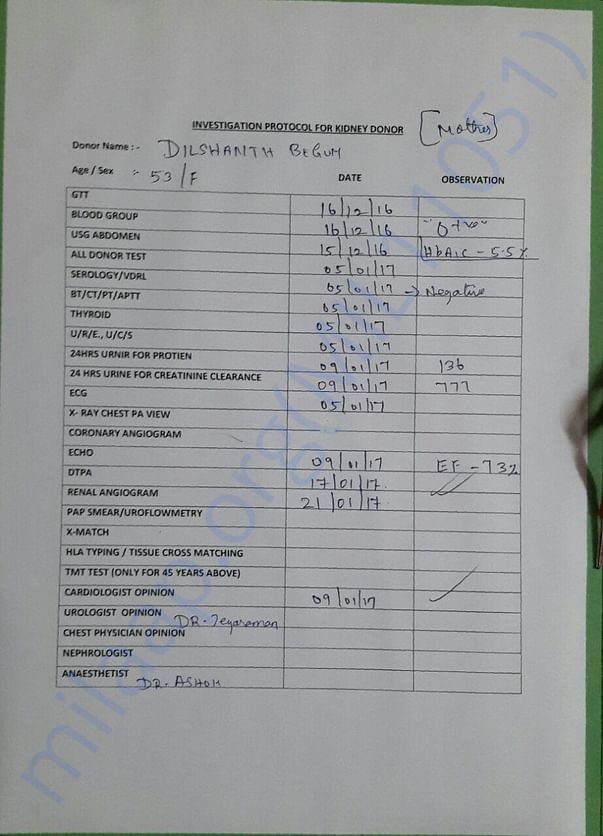 INVESTIGATION PROTOCOL FOR KIDNEY DONOR [Mother]
Donor Name :- DILSHANTH BEGUM
Age / Sex :- 53/F
DATE OBSERVATION
GTT 16/12/16
BLOOD GROUP 16/12/16 "O +ve"
USG ABDOMEN 15/12/16 HbA1c - 5.5%
ALL DONOR TEST 05/01/17
SEROLOGY/VDRL 05/01/17 → Negative
BT/CT/PT/APTT 05/01/17
THYROID 05/01/17
U/R/E., U/C/S 05/01/17
24HRS URNIR FOR PROTIEN 09/01/17 136
24 HRS URINE FOR CREATININE CLEARANCE 09/01/17 777
ECG 05/01/17
X- RAY CHEST PA VIEW
CORONARY ANGIOGRAM
ECHO 09/01/17 EF - 73%
DTPA 17/01/17. ✓
RENAL ANGIOGRAM 21/01/17.
PAP SMEAR/UROFLOWMETRY
X-MATCH
HLA TYPING / TISSUE CROSS MATCHING
TMT TEST (ONLY FOR 45 YEARS ABOVE)
CARDIOLOGIST OPINION 09/01/17 ✓
UROLOGIST OPINION DR. Jeyaraman
CHEST PHYSICIAN OPINION
NEPHROLOGIST
ANAESTHETIST DR. ASHOK
milaap.org